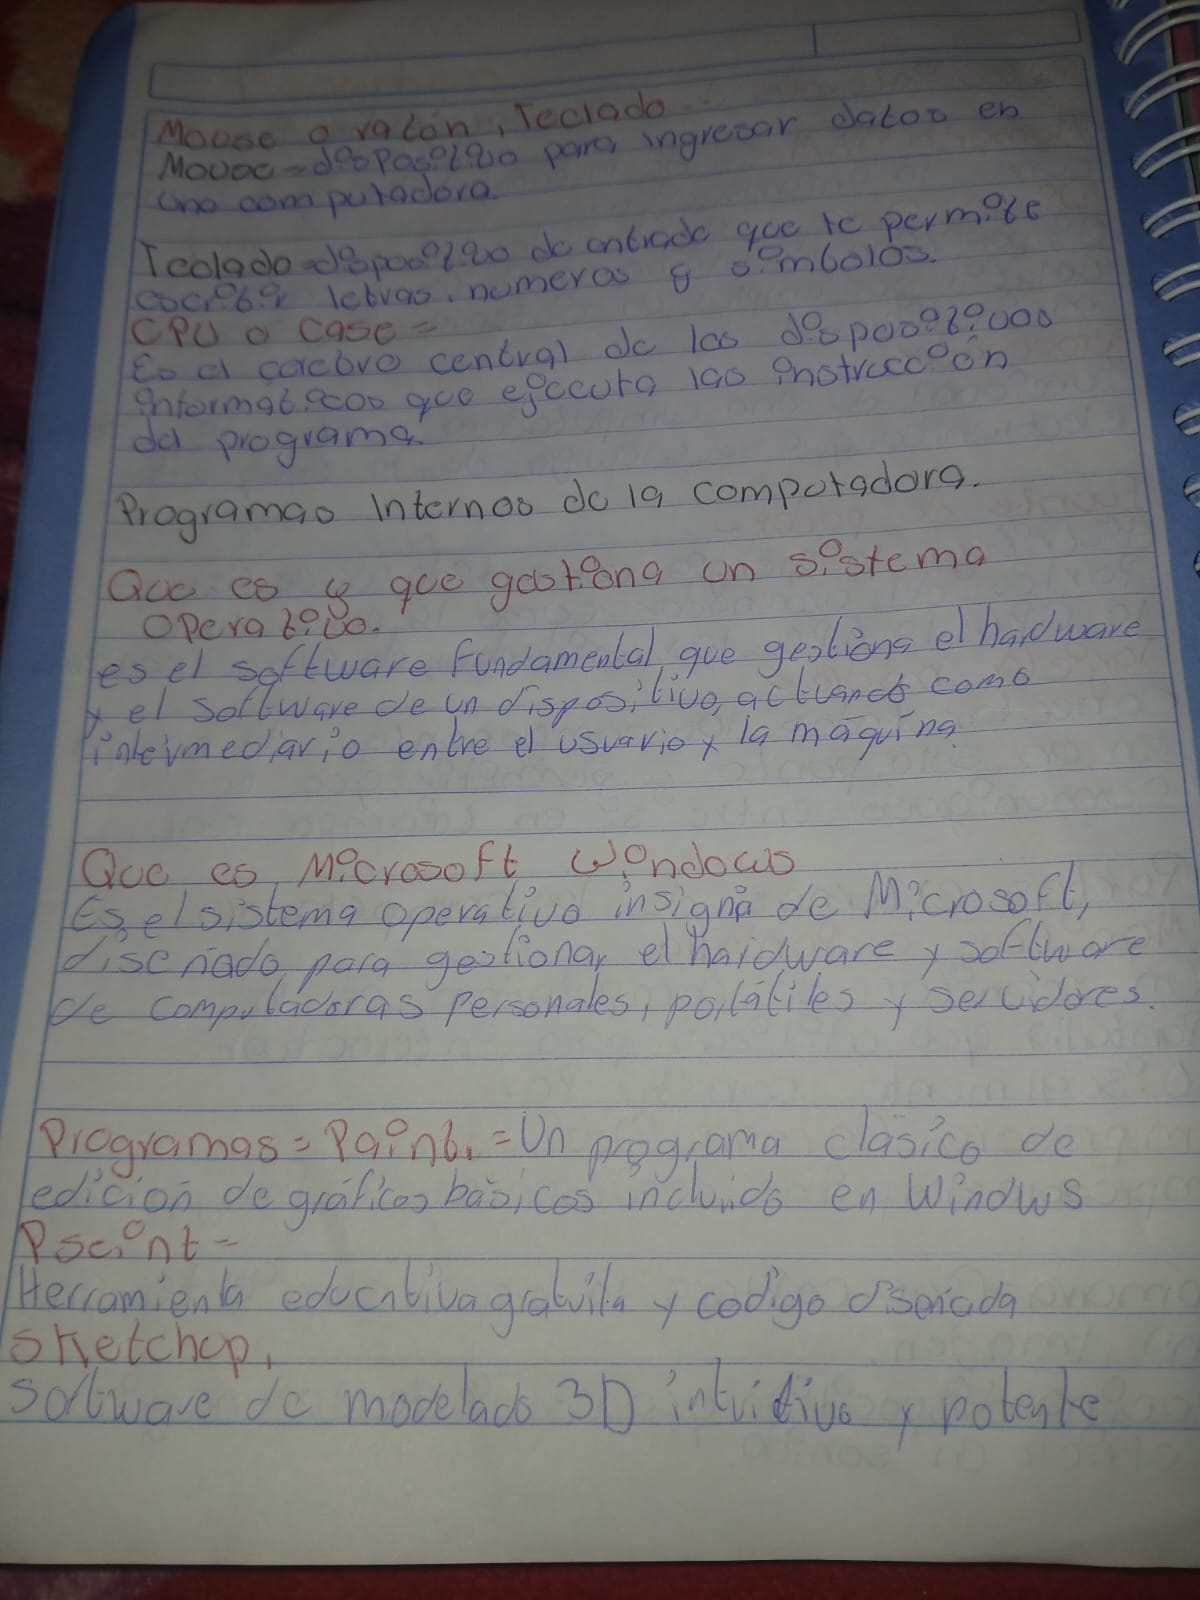 Mouse o ratón, Teclado
Mouse - dispositivo para ingresar datos en
una computadora.
Teclado - dispositivo de entrada que te permite
escribir letras, numeros y simbolos.
CPU o Case =
Es el cerebro central de los dispositivos
informaticos que ejecuta las instrucción
del programa.
Programas Internos de la computadora.
Que es y que gestiona un sistema
operativo.
es el software fundamental que gestiona el hardware
y el software de un dispositivo, actuando como
intermediario entre el usuario y la máquina
Que es Microsoft Windows
Es el sistema operativo insignia de Microsoft,
diseñado para gestionar el hardware y software
de computadoras personales, portátiles y servidores.
Programas = Paint. = Un programa clásico de
edición de gráficos básicos incluido en Windws
Pseint -
Herramienta educativa gratuita y codigo diseñada
Sketchup,
Software de modelado 3D intuitivo y potente